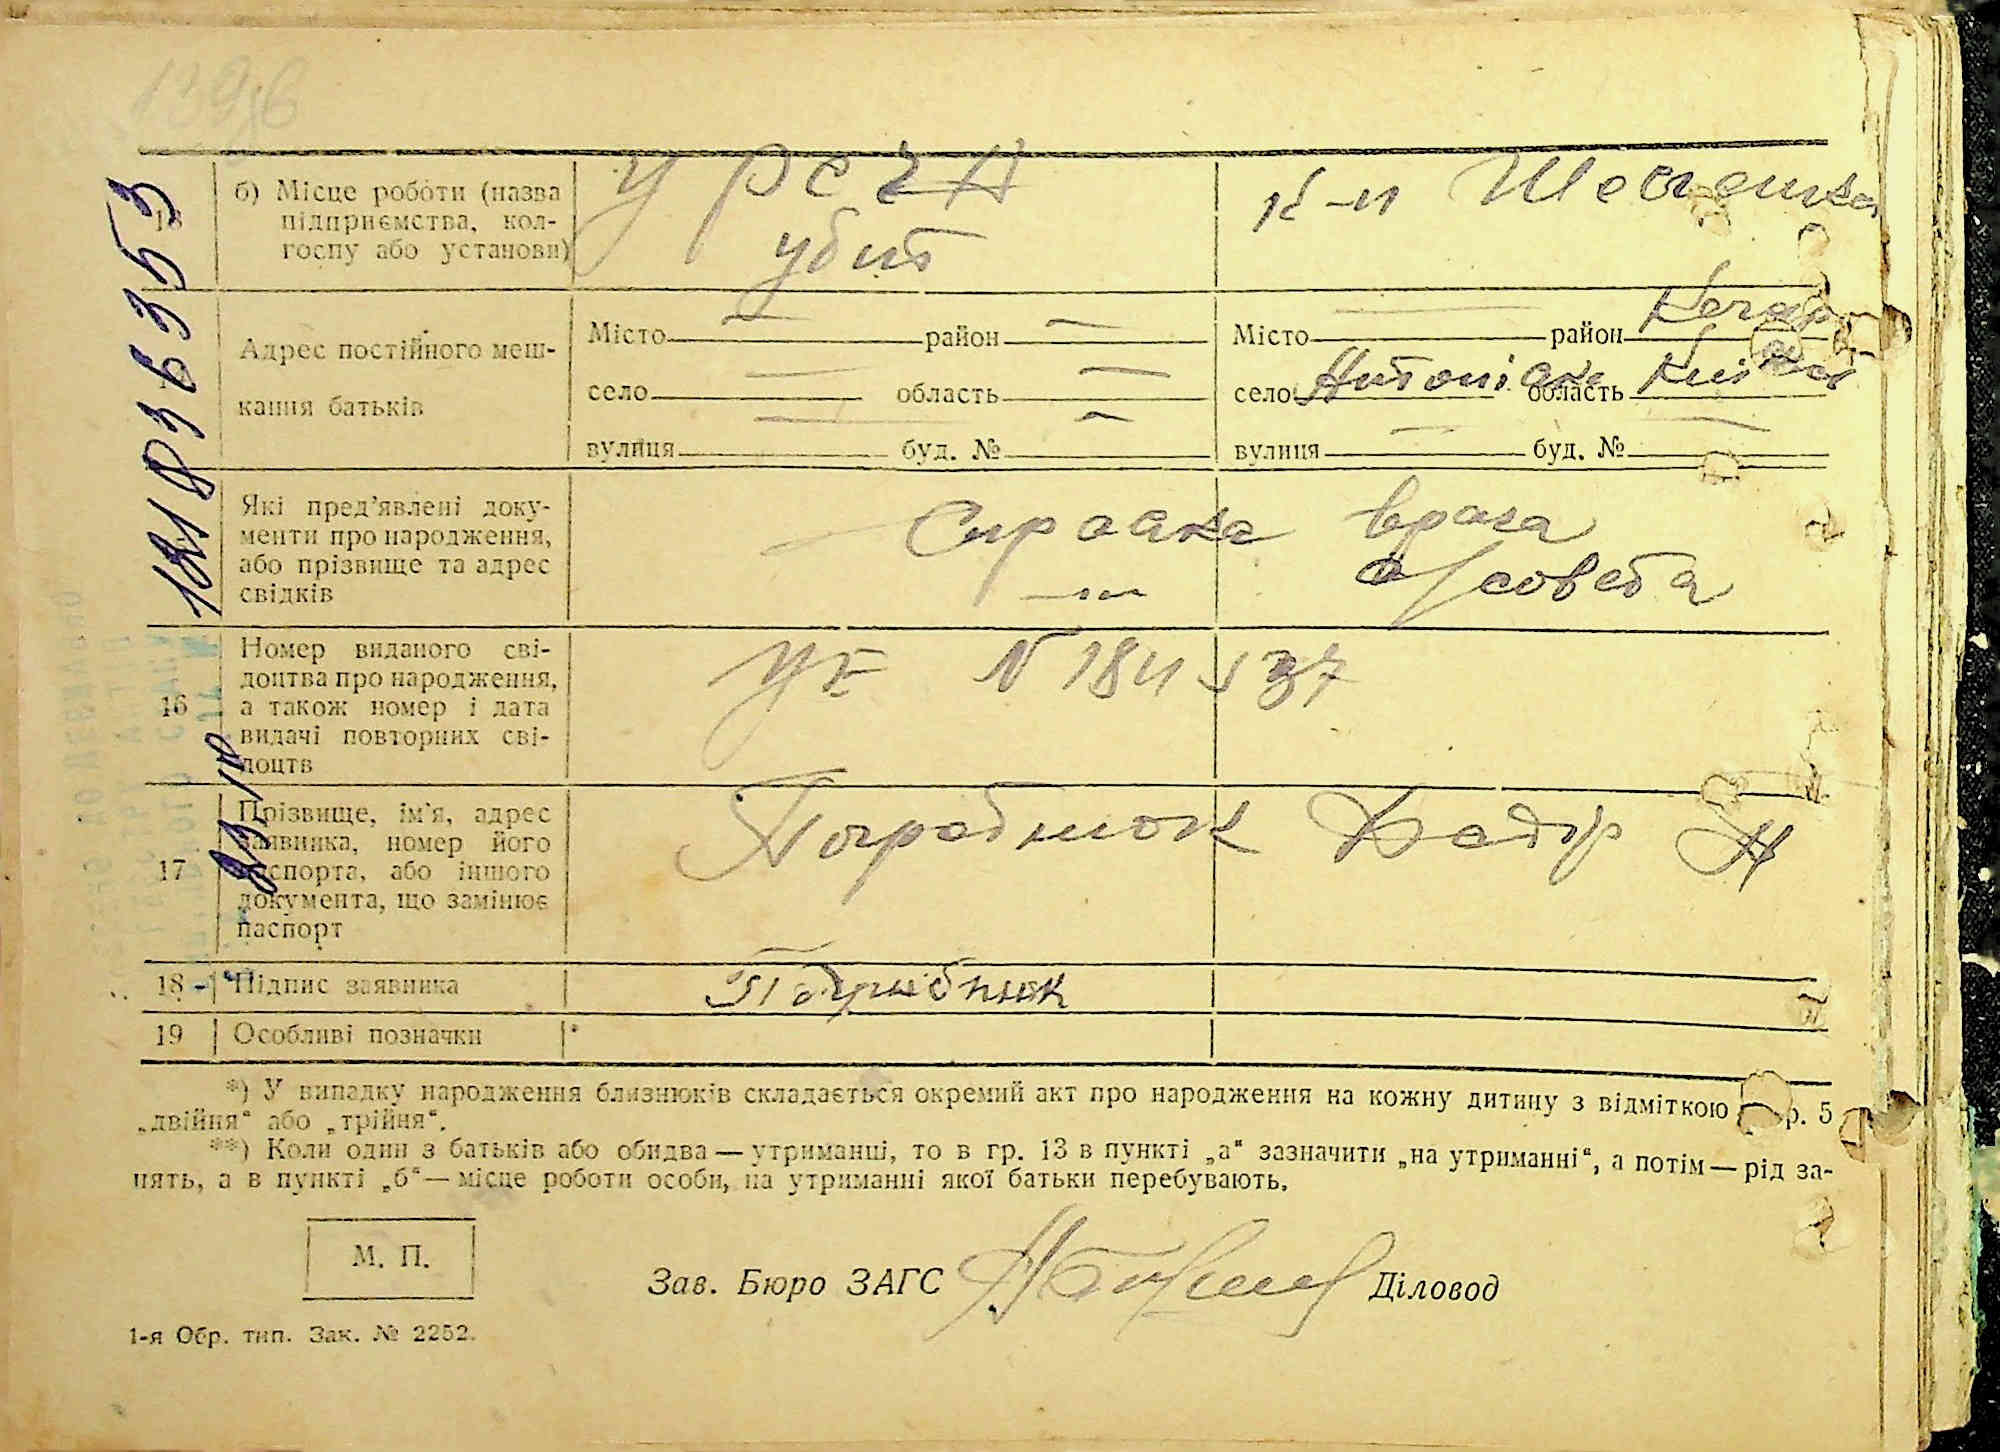 1396
б) Місце роботи (назва підприємства, колгоспу або установи)
убит
к-п Шевченка
Адрес постійного мешкання батьків
Місто — район —
село — область —
вулиця — буд. № —
Місто — район
село Антонівка область Київська
вулиця — буд. № —
Які пред'явлені документи про народження, або прізвище та адрес свідків
Справка врача
с/совета
16 Номер виданого свідоцтва про народження, а також номер і дата видачі повторних свідоцтв
N 184537
17 Прізвище, ім'я, адрес заявника, номер його паспорта, або іншого документа, що замінює паспорт
Погребнюк
18 Підпис заявника
Погрибнюк
19 Особливі позначки
*) У випадку народження близнюків складається окремий акт про народження на кожну дитину з відміткою р. 5
„двійня“ або „трійня“.
**) Коли один з батьків або обидва — утриманці, то в гр. 13 в пункті „а“ зазначити „на утриманні“, а потім — рід за-
нять, а в пункті „б“ — місце роботи особи, на утриманні якої батьки перебувають.
М. П.
Зав. Бюро ЗАГС
Діловод
1-я Обр. тип. Зак. № 2252.